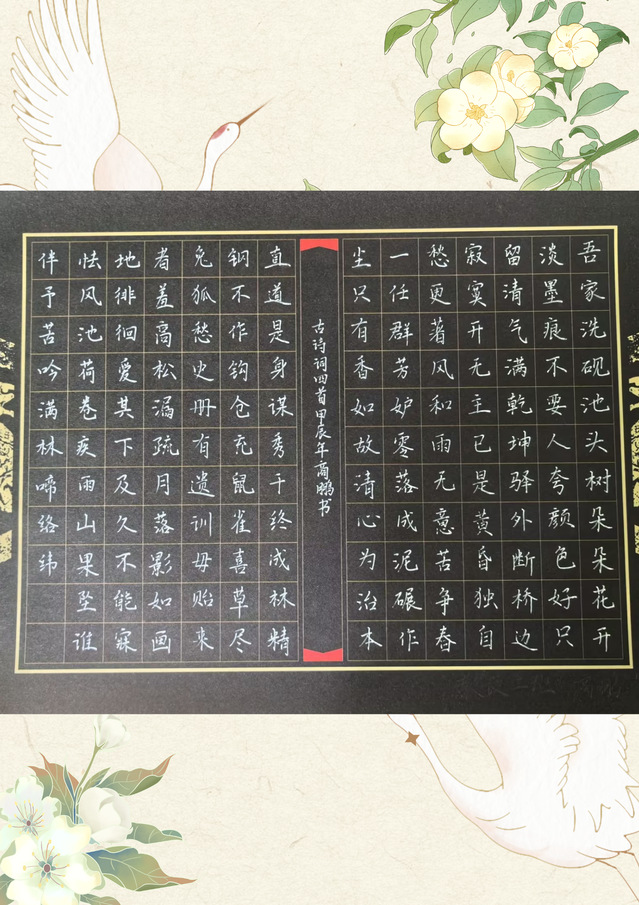 吾家洗砚池头树朵朵花开
淡墨痕不要人夸颜色好只
留清气满乾坤驿外断桥边
寂寞开无主已是黄昏独自
愁更著风和雨无意苦争春
一任群芳妒零落成泥碾作
尘只有香如故清心为治本
古诗词四首甲辰年商鹏书
直道是身谋秀干终成林精
钢不作钩仓充鼠雀喜草尽
兔狐愁史册有遗训毋贻来
者羞高松漏疏月落影如画
地徘徊爱其下及久不能寐
怯风池荷卷疾雨山果坠谁
伴予苦吟满林啼络纬